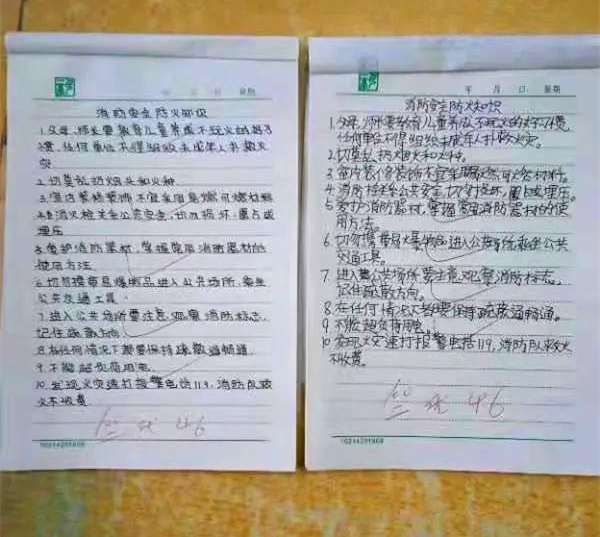 年 月 日 星期
消防安全防火知识
1.父母、师长要教育儿童养成不玩火的好习
惯,任何单位不得组织未成年人扑救火
灾
2.切莫乱扔烟头和火种
3.室内装修装饰不宜采用易燃可燃材料
4.消火栓关系公共安全,切勿损坏、圈占或
埋压
5.爱护消防器材,掌握常用消防器材的
使用方法
6.切勿携带易爆物品进入公共场所、乘坐
公共交通工具
7.进入公共场所要注意观察消防标志,
记住疏散方向
8.在任何情况下都要保持疏散通畅
9.不能超负荷用电
10.发现火灾速打报警电话119,消防队救
火不收费
100 优 4.6
年 月 日 星期
消防安全防火知识
1.父母、师长要教育儿童养成不玩火的好习惯,
任何单位不得组织未成年人扑救火灾。
2.切莫乱扔烟头和火种。
3.室内装修装饰不宜采用易燃可燃材料。
4.消防栓关系公共安全切勿损坏、圈占或埋压。
5.爱护消防器材,掌握常用消防器材的使
用方法。
6.切勿携带易爆物品进入公共场所乘坐公共
交通工具。
7.进入公共场所要注意观察消防标志,
记住疏散方向。
8.在任何情况下都要保持疏散通畅。
9.不能超负荷用电。
10.发现火灾速打报警电话119,消防队救火
不收费。
100 优 4.6